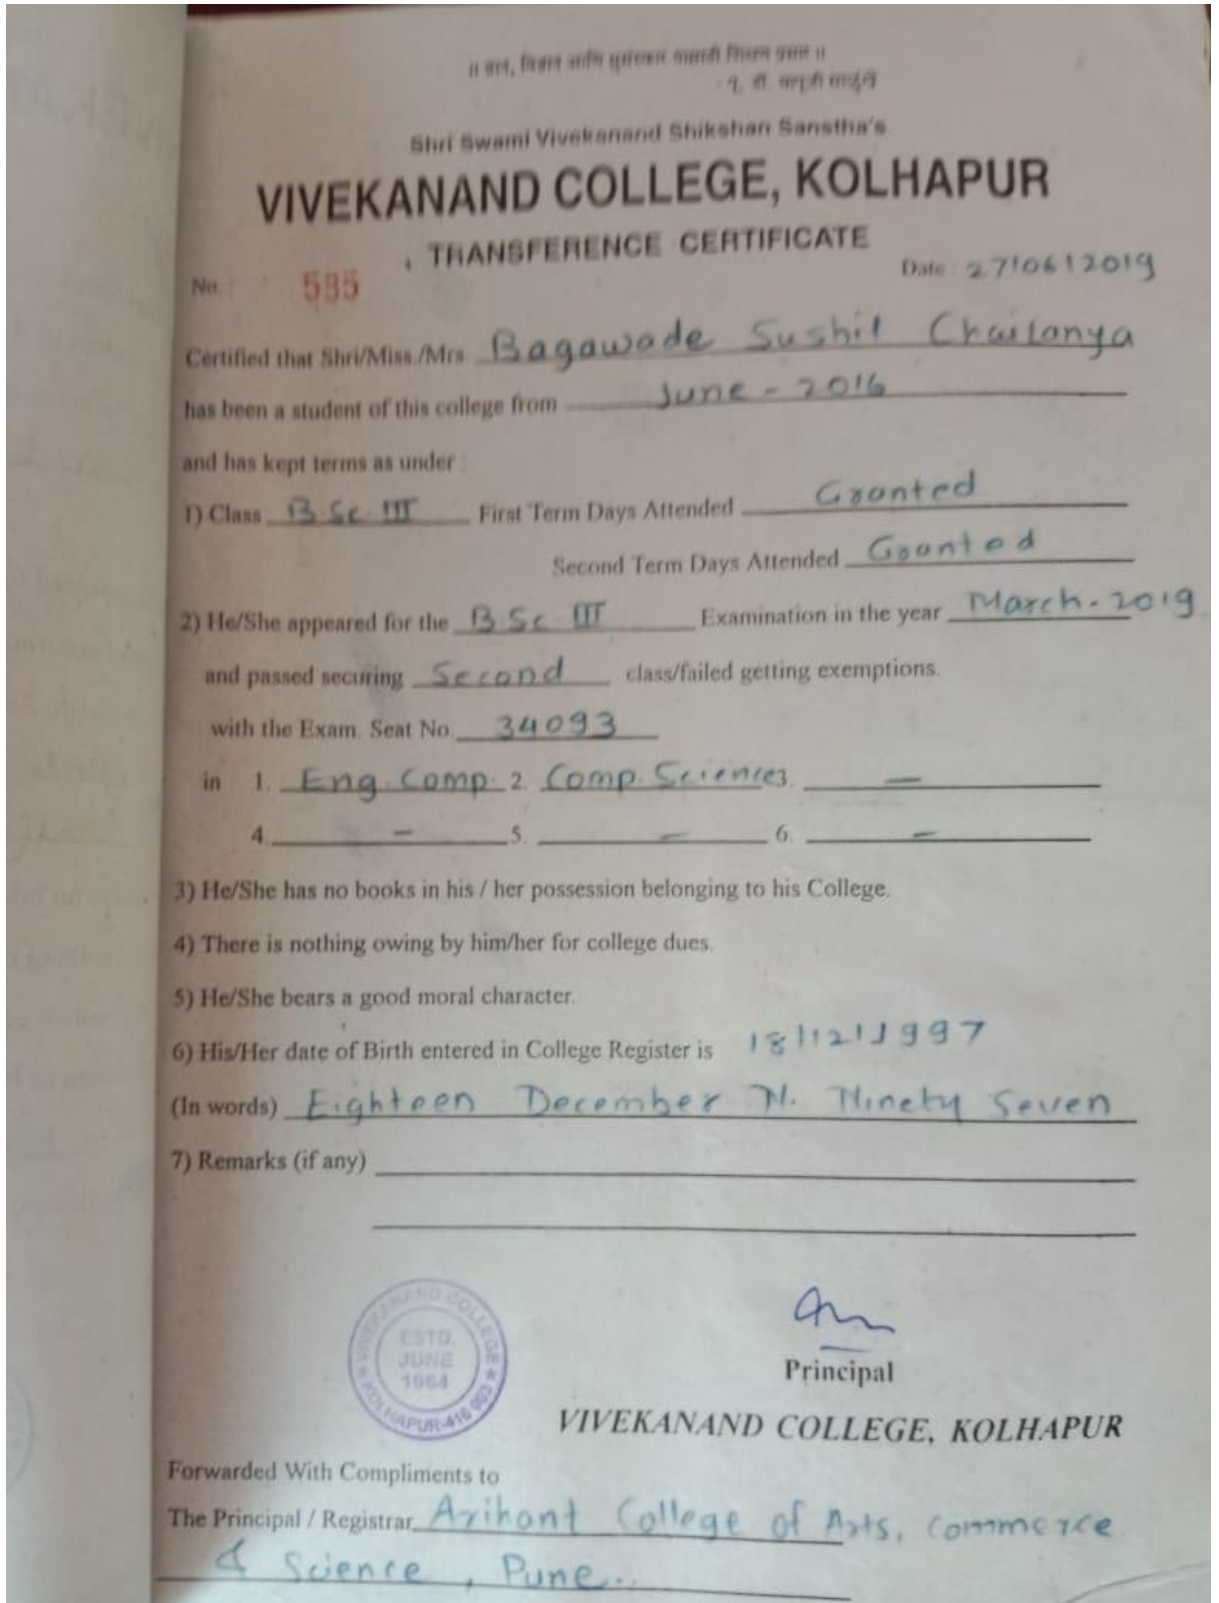 ॥ ज्ञान, विज्ञान आणि सुसंस्कार यासाठी शिक्षण प्रसार ॥
Shri Swami Vivekanand Shikshan Sanstha's
VIVEKANAND COLLEGE, KOLHAPUR
TRANSFERENCE CERTIFICATE
No. 535 Date : 27/06/2019
Certified that Shri/Miss./Mrs Bagawade Sushil Chaitanya
has been a student of this college from June - 2016
and has kept terms as under :
1) Class B.Sc. III First Term Days Attended Granted
Second Term Days Attended Granted
2) He/She appeared for the B.Sc. III Examination in the year March-2019
and passed securing Second class/failed getting exemptions.
with the Exam. Seat No. 34093
in 1. Eng. Comp. 2. Comp. Science 3. —
4. — 5. — 6. —
3) He/She has no books in his / her possession belonging to his College.
4) There is nothing owing by him/her for college dues.
5) He/She bears a good moral character.
6) His/Her date of Birth entered in College Register is 18/12/1997
(In words) Eighteen December N. Ninety Seven
7) Remarks (if any)
VIVEKANAND COLLEGE
ESTD.
JUNE
1964
KOLHAPUR-416 003
Principal
VIVEKANAND COLLEGE, KOLHAPUR
Forwarded With Compliments to
The Principal / Registrar Arihant College of Arts, Commerce
& Science, Pune..